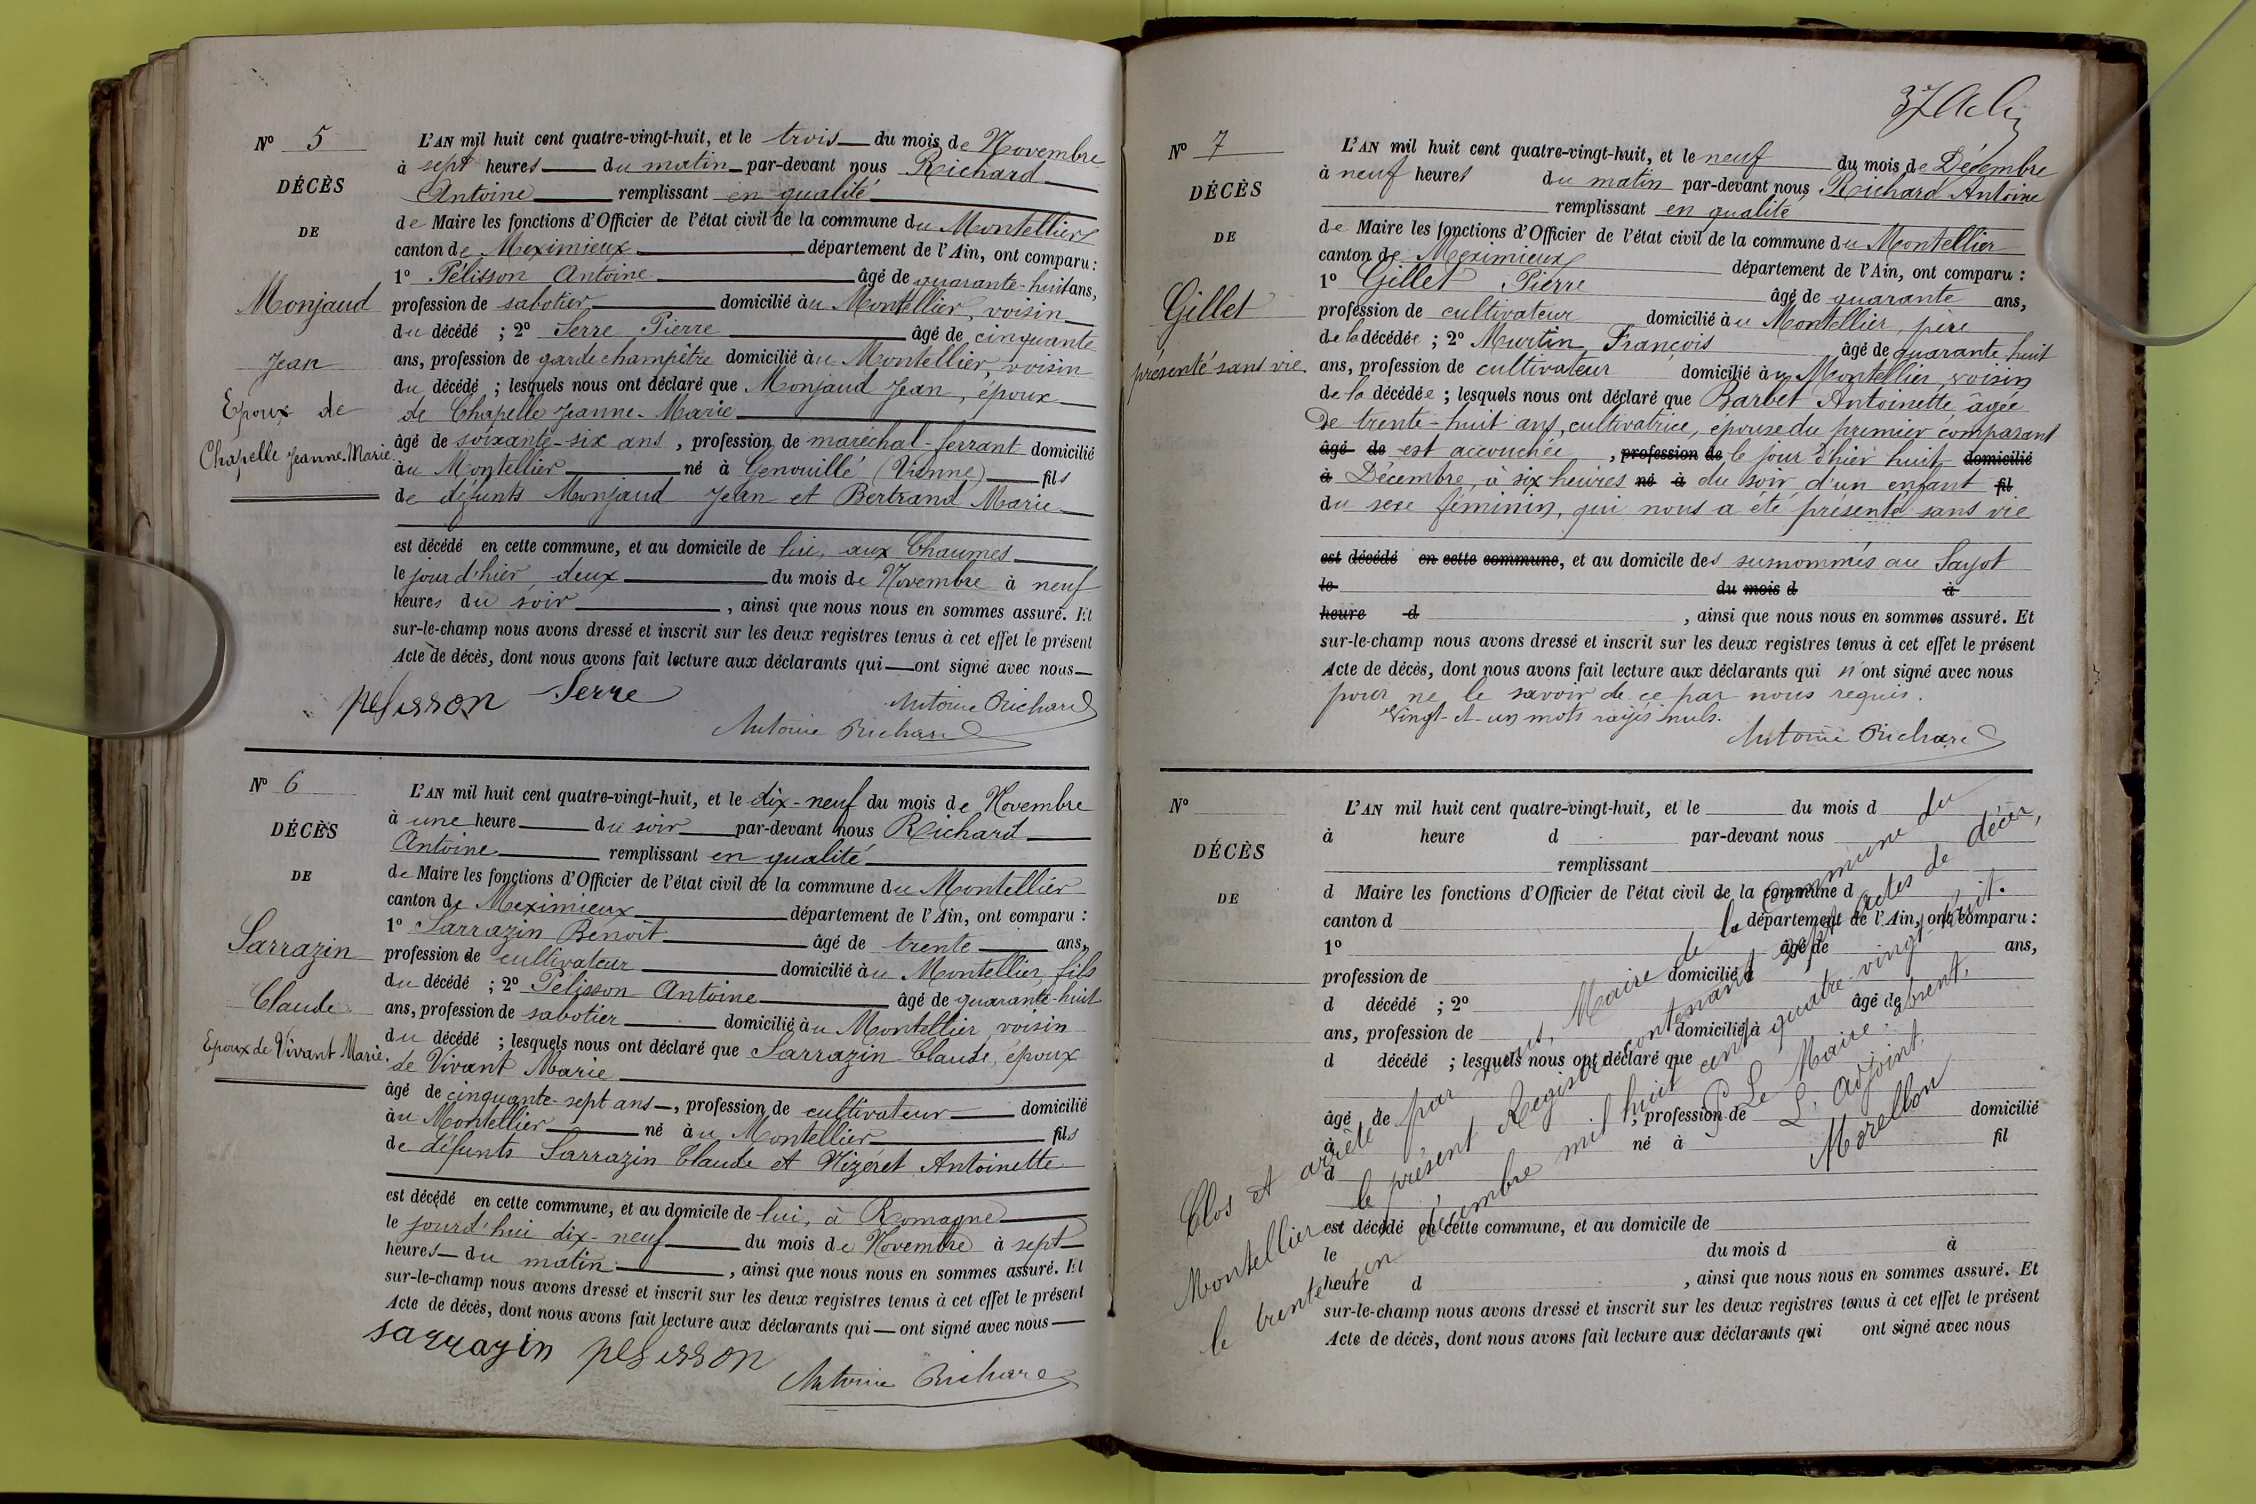 N° 5
DÉCÈS
DE
Monjaud
Jean
Epoux de
Chapelle Jeanne-Marie
L'AN mil huit cent quatre-vingt-huit, et le trois du mois de Novembre
à sept heures du matin par-devant nous Richard
Antoine remplissant en qualité
de Maire les fonctions d'Officier de l'état civil de la commune du Montellier
canton de Meximieux département de l'Ain, ont comparu :
1° Pélisson Antoine âgé de quarante-huit ans,
profession de sabotier domicilié au Montellier, voisin
du décédé ; 2° Serre Pierre âgé de cinquante
ans, profession de garde champêtre domicilié au Montellier, voisin
du décédé ; lesquels nous ont déclaré que Monjaud Jean, époux
de Chapelle Jeanne-Marie
âgé de soixante-six ans, profession de maréchal-ferrant domicilié
au Montellier né à Genouillé (Vienne) fils
de défunts Monjaud Jean et Bertrand Marie
est décédé en cette commune, et au domicile de lui, aux Chaumes
le jour d'hier, deux du mois de Novembre à neuf
heures du soir, ainsi que nous nous en sommes assuré. Et
sur-le-champ nous avons dressé et inscrit sur les deux registres tenus à cet effet le présent
Acte de décès, dont nous avons fait lecture aux déclarants qui ont signé avec nous
pelisson Serre Antoine Richard
Antoine Richard
N° 6
DÉCÈS
DE
Sarrazin
Claude
Epoux de Vivant Marie.
L'AN mil huit cent quatre-vingt-huit, et le dix-neuf du mois de Novembre
à une heure du soir par-devant nous Richard
Antoine remplissant en qualité
de Maire les fonctions d'Officier de l'état civil de la commune du Montellier
canton de Meximieux département de l'Ain, ont comparu :
1° Sarrazin Benoit âgé de trente ans,
profession de cultivateur domicilié au Montellier, fils
du décédé ; 2° Pelisson Antoine âgé de quarante-huit
ans, profession de sabotier domicilié au Montellier, voisin
du décédé ; lesquels nous ont déclaré que Sarrazin Claude, époux
de Vivant Marie
âgé de cinquante-sept ans, profession de cultivateur domicilié
au Montellier né au Montellier fils
de défunts Sarrazin Claude et Nizeret Antoinette
est décédé en cette commune, et au domicile de lui, à Romagne
le jourd'hui dix-neuf du mois de Novembre à sept
heures du matin, ainsi que nous nous en sommes assuré. Et
sur-le-champ nous avons dressé et inscrit sur les deux registres tenus à cet effet le présent
Acte de décès, dont nous avons fait lecture aux déclarants qui ont signé avec nous
sarrazin pelisson Antoine Richard
N° 7
DÉCÈS
DE
Gillet
présenté sans vie
L'AN mil huit cent quatre-vingt-huit, et le neuf du mois de Décembre
à neuf heures du matin par-devant nous Richard Antoine
remplissant en qualité
de Maire les fonctions d'Officier de l'état civil de la commune du Montellier
canton de Meximieux département de l'Ain, ont comparu :
1° Gillet Pierre âgé de quarante ans,
profession de cultivateur domicilié au Montellier, père
de la décédée ; 2° Murtin François âgé de quarante huit
ans, profession de cultivateur domicilié au Montellier, voisin
de la décédée ; lesquels nous ont déclaré que Barbet Antoinette, âgée
de trente-huit ans, cultivatrice, épouse du premier comparant
âgé de est accouchée, profession de le jour d'hier huit domicilié
à Décembre, à six heures né à du soir d'un enfant fil
du sexe féminin, qui nous a été présenté sans vie
est décédé en cette commune, et au domicile des susnommés au Sayot
le du mois d à
heure d, ainsi que nous nous en sommes assuré. Et
sur-le-champ nous avons dressé et inscrit sur les deux registres tenus à cet effet le présent
Acte de décès, dont nous avons fait lecture aux déclarants qui n'ont signé avec nous
pour ne le savoir de ce par nous requis.
Vingt-et-un mots rayés nuls.
Antoine Richard
N°
DÉCÈS
DE
L'AN mil huit cent quatre-vingt-huit, et le du mois d
à heure d par-devant nous
remplissant
d Maire les fonctions d'Officier de l'état civil de la commune d
canton d département de l'Ain, ont comparu :
1° âgé de ans,
profession de domicilié à
d décédé ; 2° âgé de
ans, profession de domicilié à
d décédé ; lesquels nous ont déclaré que
âgé de , profession de domicilié
à né à fil
d
est décédé en cette commune, et au domicile de
le du mois d à
heure d , ainsi que nous nous en sommes assuré. Et
sur-le-champ nous avons dressé et inscrit sur les deux registres tenus à cet effet le présent
Acte de décès, dont nous avons fait lecture aux déclarants qui ont signé avec nous
Clos et arrêté par nous, Maire de la Commune du
Montellier le présent Registre contenant sept actes de décès,
le trente-un décembre mil huit cent quatre-vingt-huit.
P. Le Maire absent,
L'adjoint,
Morellon